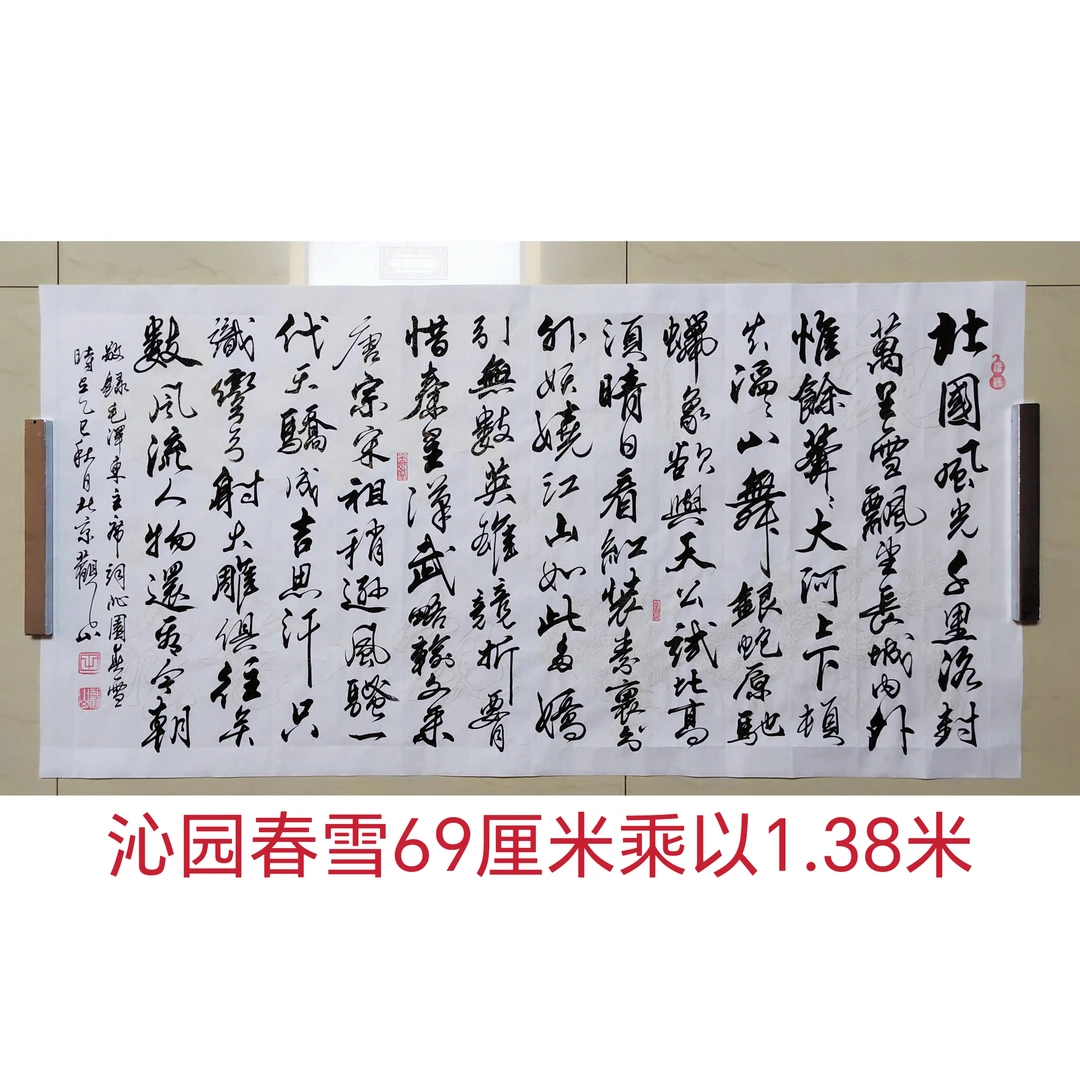 北國風光千里冰封
萬里雪飄望長城内外
惟餘莽〻大河上下頓
失滔〻山舞銀蛇原馳
蠟象欲與天公試比高
須晴日看紅裝素裹分
外妖嬈江山如此多嬌
引無數英雄競折腰
惜秦皇漢武略輸文采
唐宗宋祖稍遜風騷一
代天驕成吉思汗只
識彎弓射大雕俱往矣
數風流人物還看今朝
敬錄毛澤東主席詞沁園春雪
時在乙巳秋月北京觀山
沁园春雪69厘米乘以1.38米